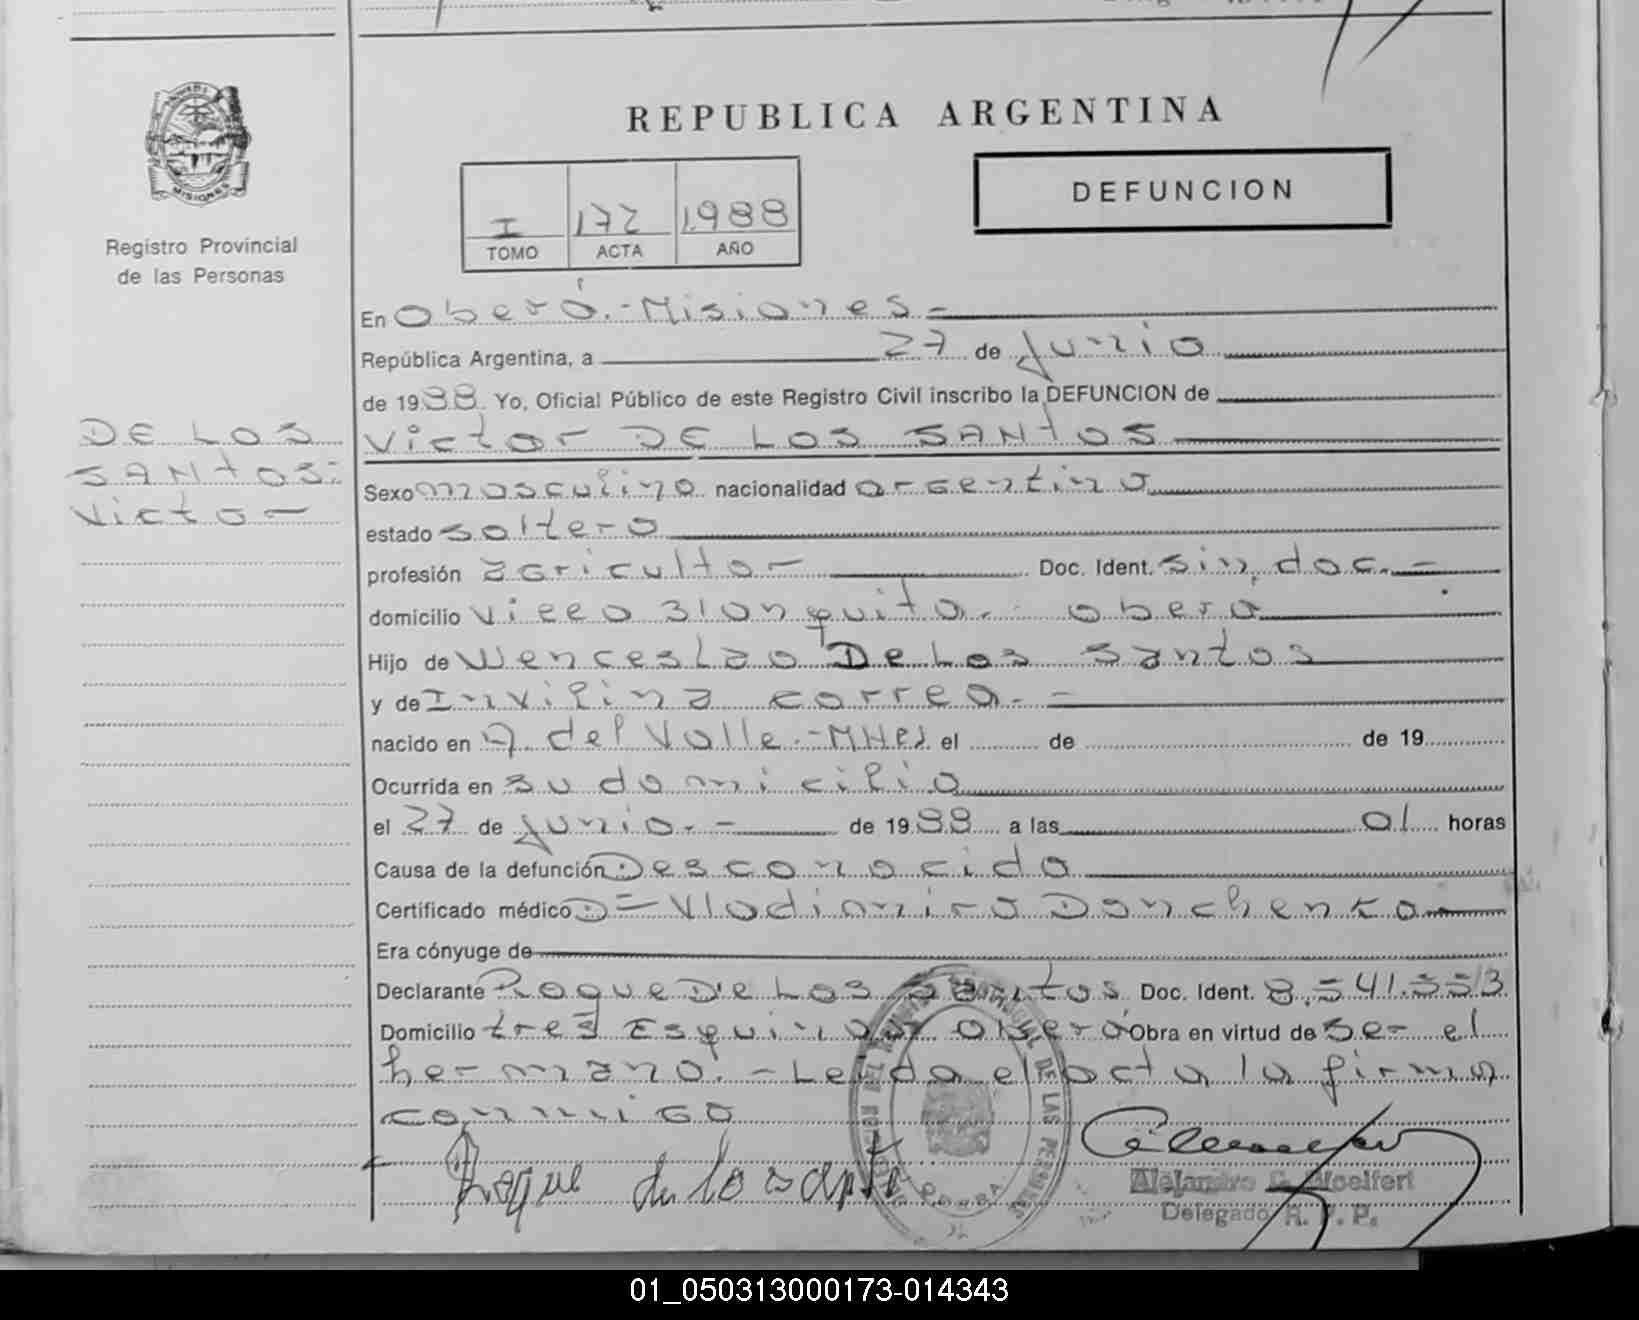 REPUBLICA ARGENTINA
MISIONES
Registro Provincial
de las Personas
I 172 1.988
TOMO ACTA AÑO
DEFUNCION
En Oberá.-Misiones-
República Argentina, a 27 de Junio
de 1988. Yo, Oficial Público de este Registro Civil inscribo la DEFUNCION de
Victor DE LOS SANtOS
DE LOS
SANtOS:
Victor
Sexo masculino nacionalidad argentino
estado soltero
profesión agricultor Doc. Ident. sin doc.-
domicilio Villa Blanquita.- Oberá
Hijo de Wenceslao De Los Santos
y de Invilina Correa.-
nacido en A. del Valle.- el de de 19
Ocurrida en su domicilio
el 27 de Junio.- de 1988 a las 01 horas
Causa de la defunción Desconocida
Certificado médico D= Vladimiro Donchenko
Era cónyuge de
Declarante Roque De Los Santos Doc. Ident. 8.541.553
Domicilio tres Esquinas Oberá Obra en virtud de ser el
hermano.- Leída el acta la firma
conmigo
Roque de los santo
DE LAS PERSONAS
Delegado R. P. P.
01_050313000173-014343